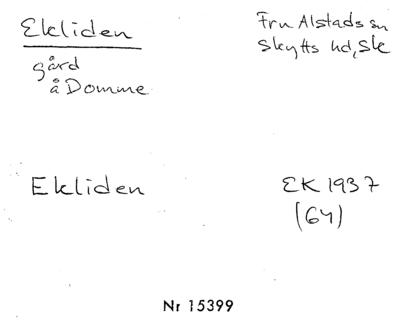 Ekliden
Fru Alstads sn
Skytts hd, Sk
gård
å Domme
Ekliden
EK 1937
(64)
Nr 15399